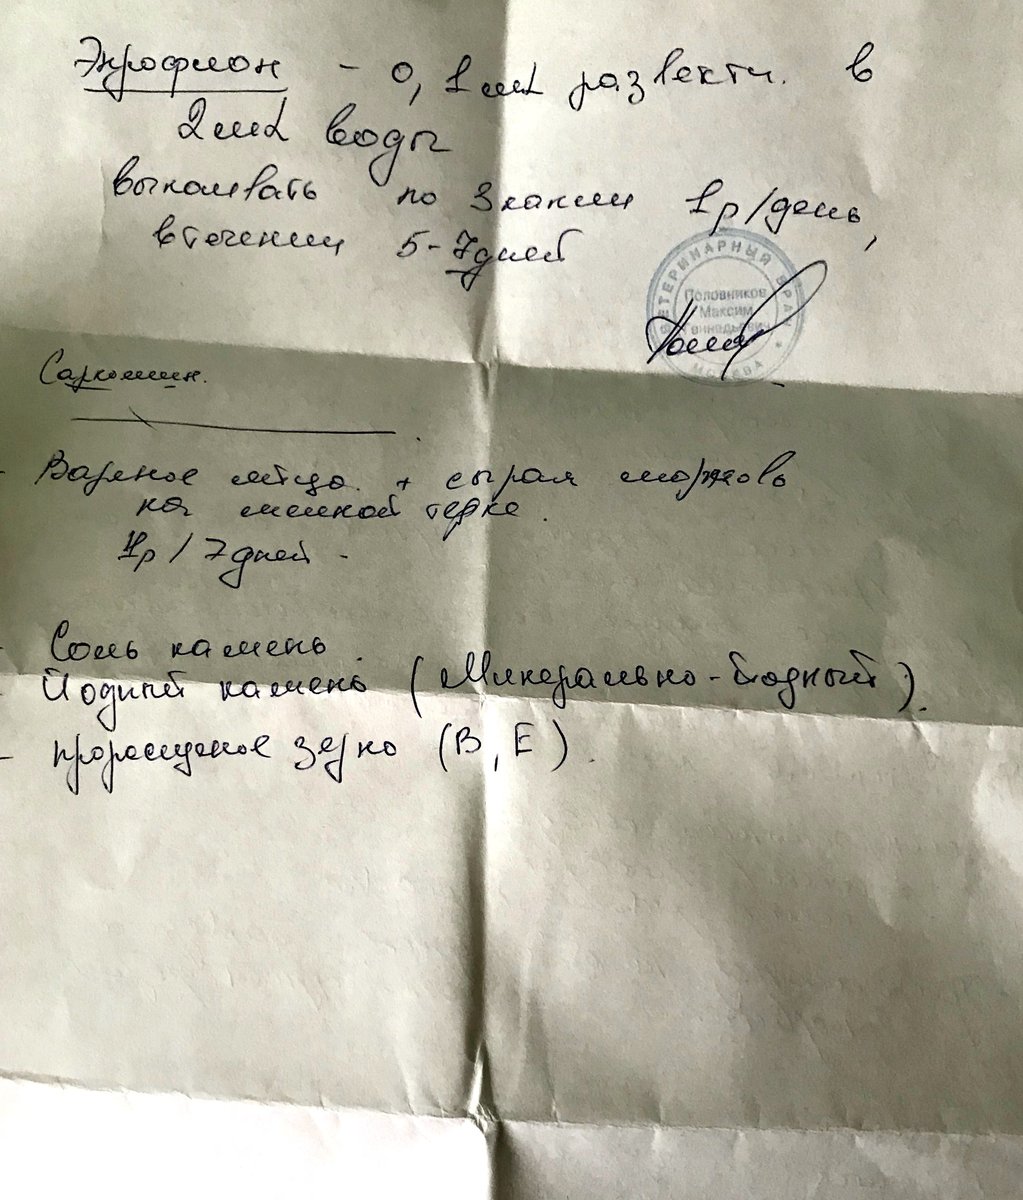 Энрофлон - 0,1мл развести. в
2мл воды
выпаивать по 3 капли 1р/день,
в течении 5-7дней
ВЕТЕРИНАРНЫЙ ВРАЧ
Половников
Максим
Геннадьевич
МОСКВА
- Вареное яйцо. + сырая морковь
на мелкой терке.
1р/7дней.
- Соль камень.
- Йодный камень (Минерально-йодный).
- пророщеное зерно (В, Е).